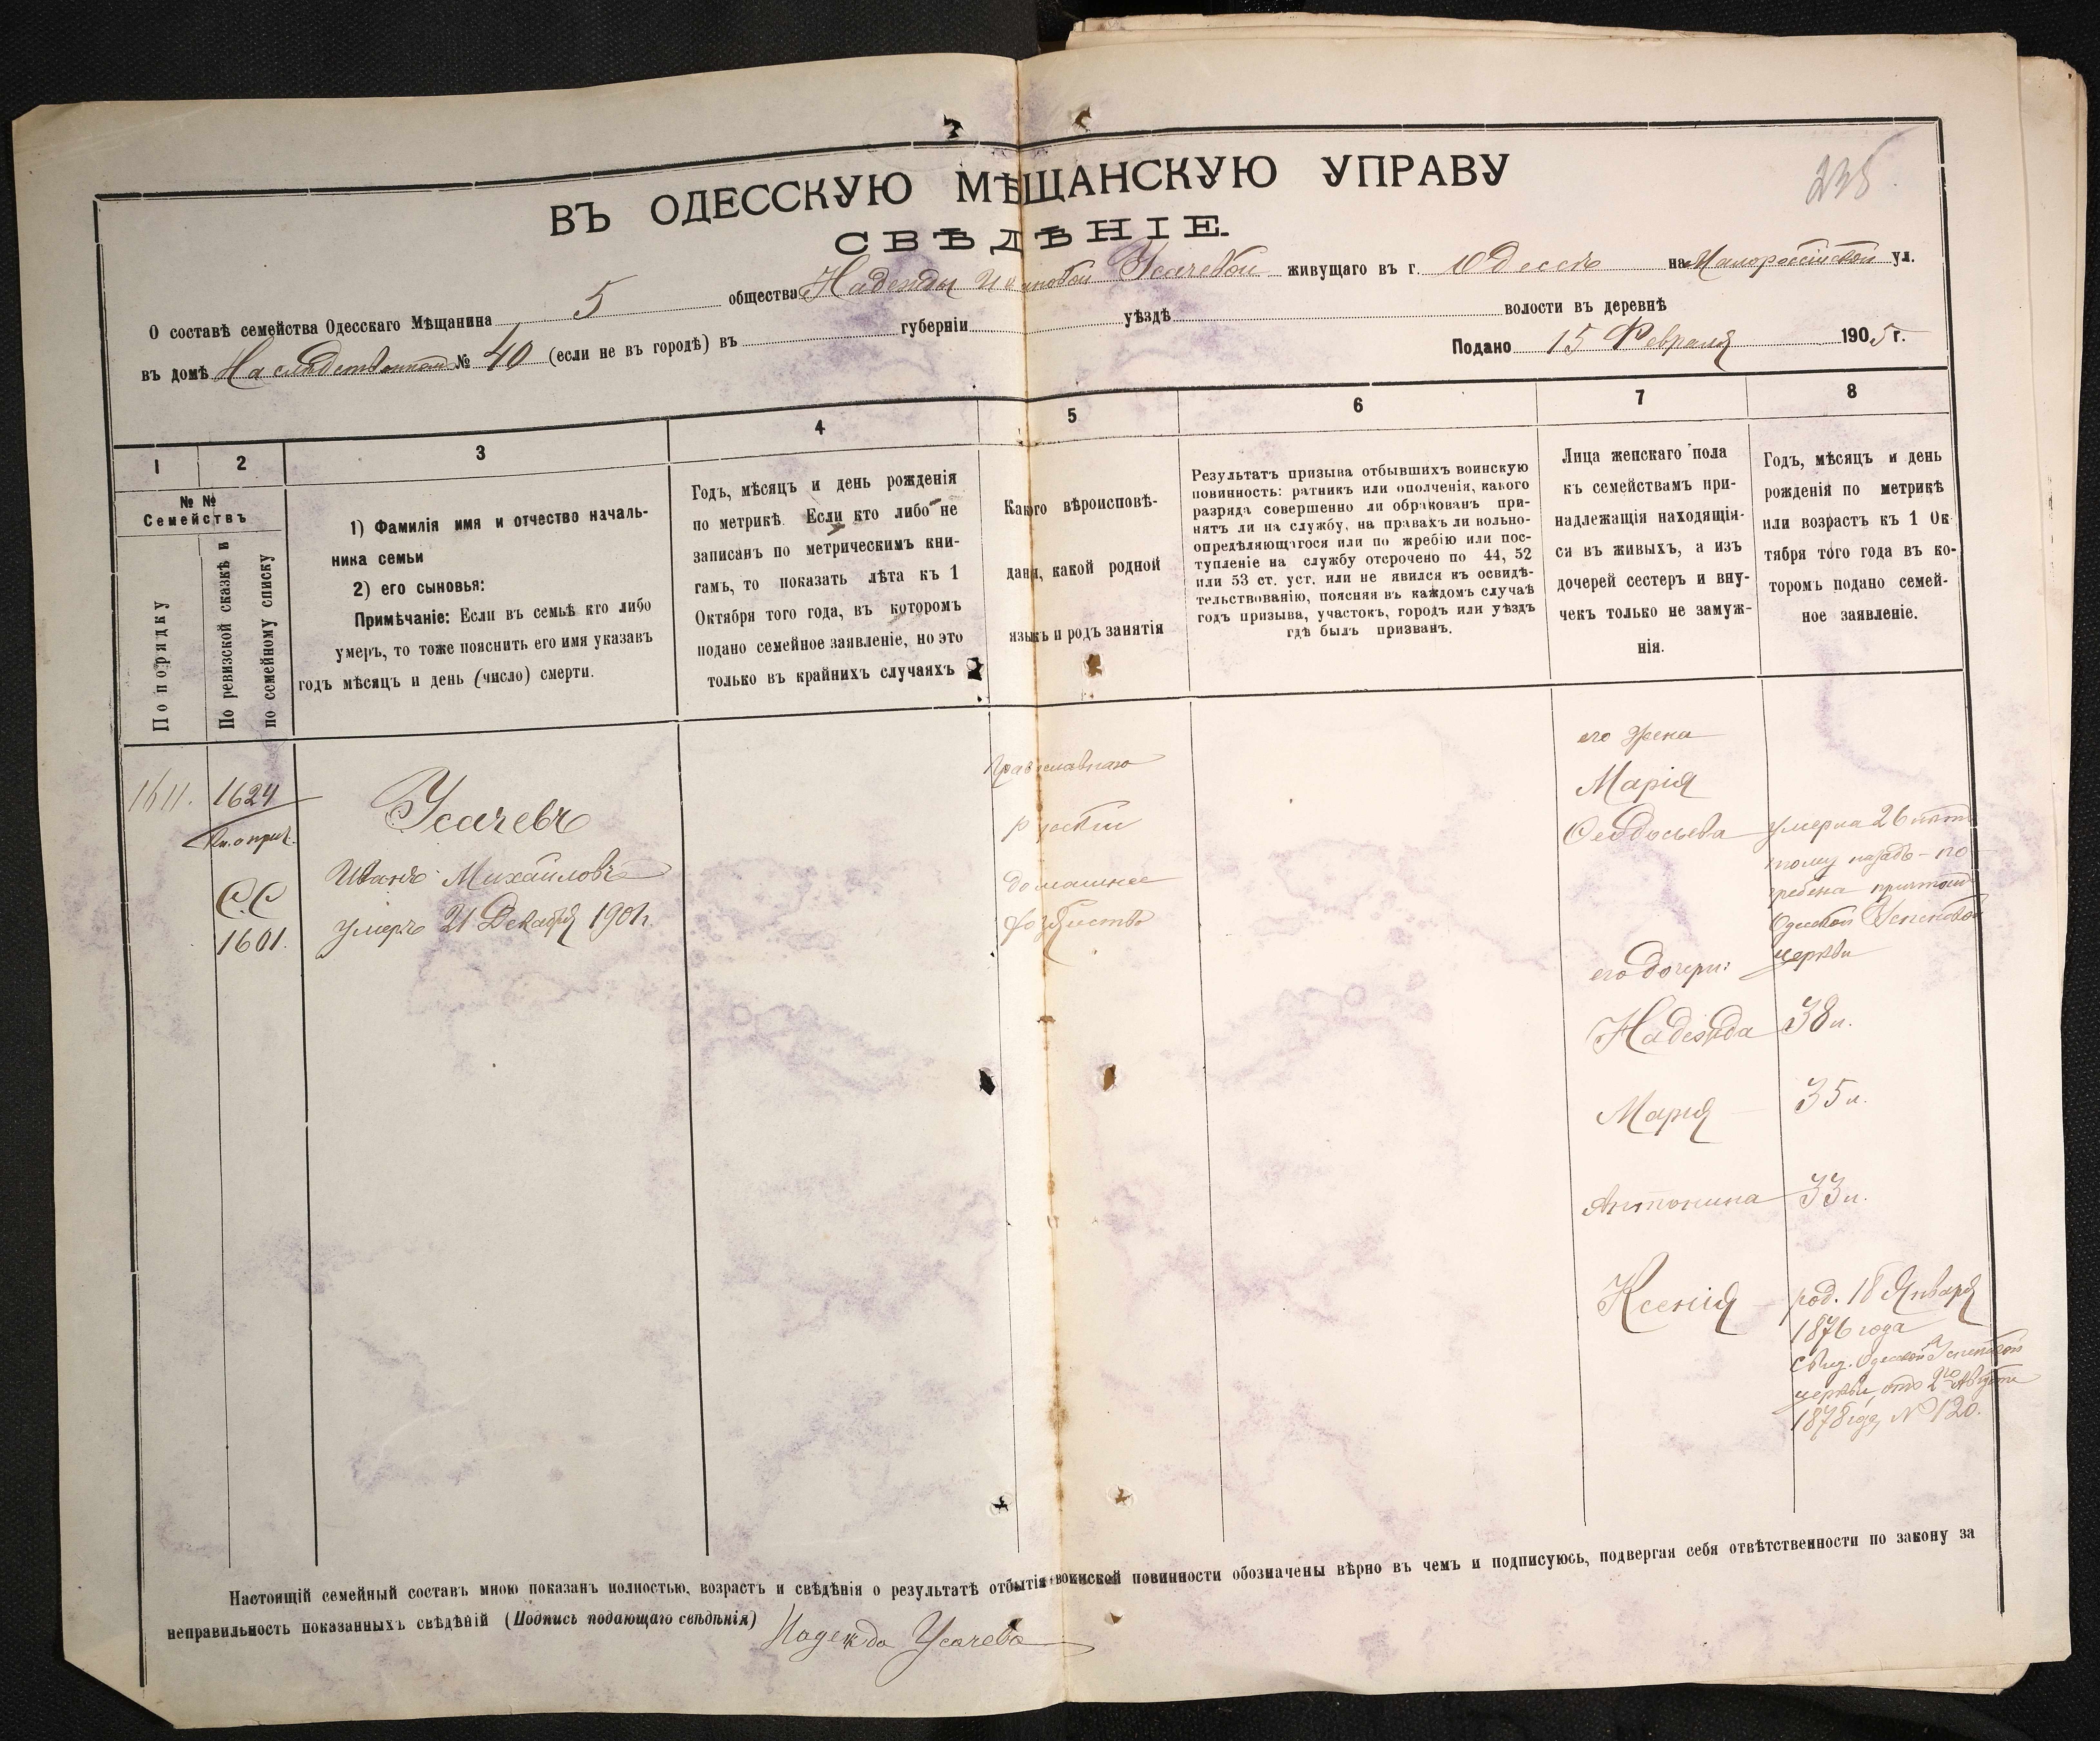 235
ВЪ ОДЕССКУЮ МѢЩАНСКУЮ УПРАВУ
СВѢДѢНІЕ.
О составѣ семейства Одесскаго Мѣщанина 5 общества Надежды Ивановой Усачевой живущаго въ г. Одессѣ на Малороссійской ул.
въ домѣ Наслѣдственномъ № 40 (если не въ городѣ) въ губерніи уѣздѣ волости въ деревнѣ
Подано 15 Февраля 1905 г.
1
2
3
4
5
6
7
8
№ №
Семействъ
По порядку
По ревизской сказкѣ и
по семейному списку
1) Фамилія имя и отчество началь-
ника семьи
2) его сыновья:
Примѣчаніе: Если въ семьѣ кто либо
умеръ, то тоже пояснить его имя указавъ
годъ мѣсяцъ и день (число) смерти.
Годъ, мѣсяцъ и день рожденія
по метрикѣ. Если кто либо не
записанъ по метрическимъ кни-
гамъ, то показать лѣта къ 1
Октября того года, въ которомъ
подано семейное заявленіе, но это
только въ крайнихъ случаяхъ
Какого вѣроисповѣ-
данія, какой родной
языкъ и родъ занятія
Результатъ призыва отбывшихъ воинскую
повинность: ратникъ или ополченія, какого
разряда совершенно ли обракованъ при-
нятъ ли на службу, на правахъ ли вольно-
опредѣляющагося или по жребію или пос-
тупленіе на службу отсрочено по 44, 52
или 53 ст. уст. или не явился къ освидѣ-
тельствованію, поясняя въ каждомъ случаѣ
годъ призыва, участокъ, городъ или уѣздъ
гдѣ былъ призванъ.
Лица женскаго пола
къ семействамъ при-
надлежащія находящія-
ся въ живыхъ, а изъ
дочерей сестеръ и вну-
чекъ только не замуж-
нія.
Годъ, мѣсяцъ и день
рожденія по метрикѣ
или возрастъ къ 1 Ок-
тября того года въ ко-
торомъ подано семей-
ное заявленіе.
1611.
1624
С.С
1601.
Усачевъ
Иванъ Михайловъ
умеръ 21 Декабря 1901 г
Православнаго
русскій
домашнее
хозяйство
его жена
Марія
Феодосьева
умерла 26 лѣтъ
тому назадъ – по-
гребена причтомъ
Одесской Успенской
церкви
его дочери:
Надежда 38 л.
Марія 35 л.
Антонина 33 л.
Ксенія – род. 18 Января
1876 года
свид. Одесской Успенской
церкви отъ 2го Августа
1878 года № 120.
Настоящій семейный составъ мною показанъ полностью, возрастъ и свѣдѣнія о результатѣ отбытія воинской повинности обозначены вѣрно въ чемъ и подписуюсь, подвергая себя отвѣтственности по закону за
неправильность показанныхъ свѣдѣній (Подпись подающаго свѣдѣнія) Надежда Усачева